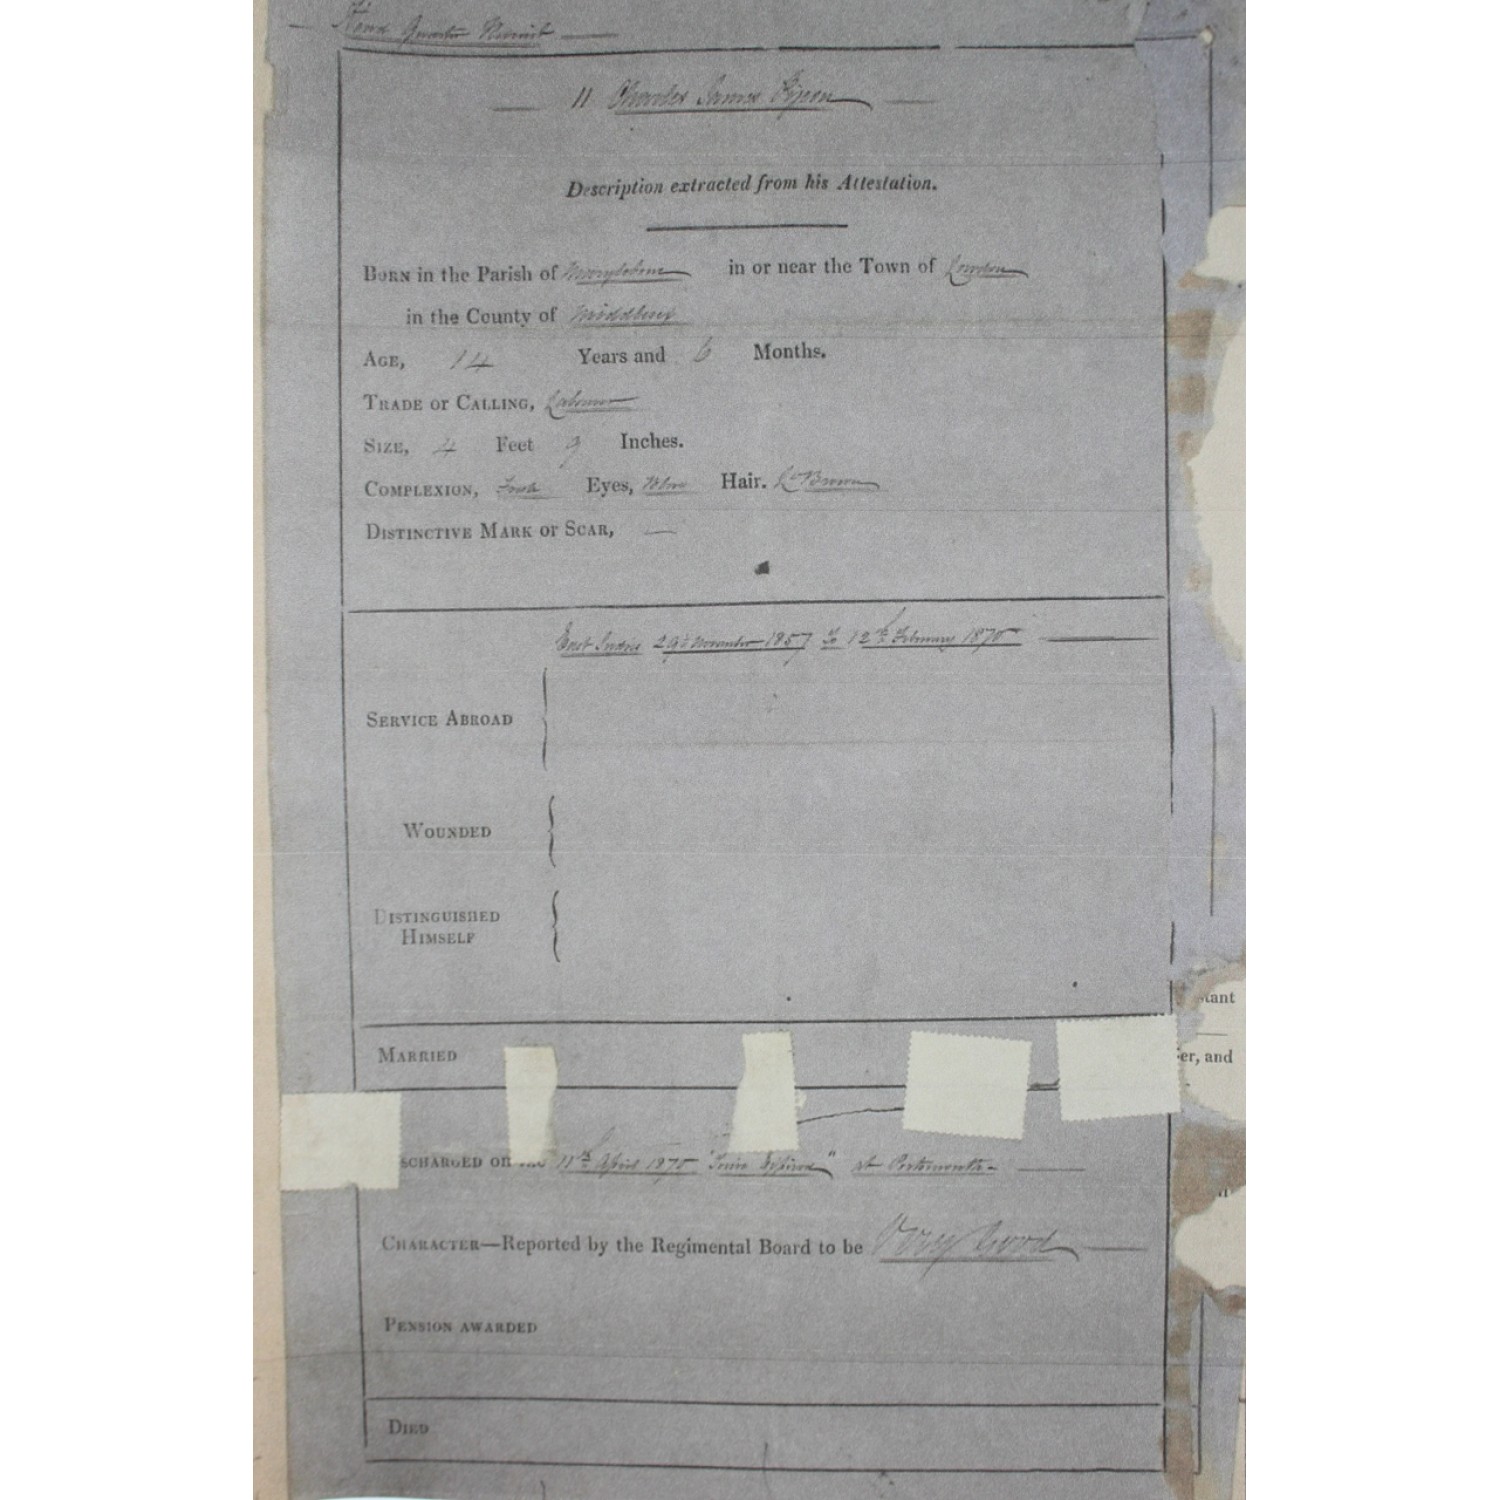 Head Quarter
11 Charles James
Description extracted from his Attestation.
BORN in the Parish of Marylebone in or near the Town of London
in the County of Middlesex
AGE, 14 Years and 6 Months.
TRADE or CALLING, Labourer
SIZE, 4 Feet 9 Inches.
COMPLEXION, Fresh Eyes, Blue Hair. Lt Brown
DISTINCTIVE MARK or SCAR, —
East Indies 29th November 1857 to 12th February 1870
SERVICE ABROAD
WOUNDED
DISTINGUISHED
HIMSELF
stant
MARRIED
er, and
SCHARGED on 11th April 1870 "Time Expired" at Portsmouth
CHARACTER—Reported by the Regimental Board to be Very Good
PENSION AWARDED
DIED